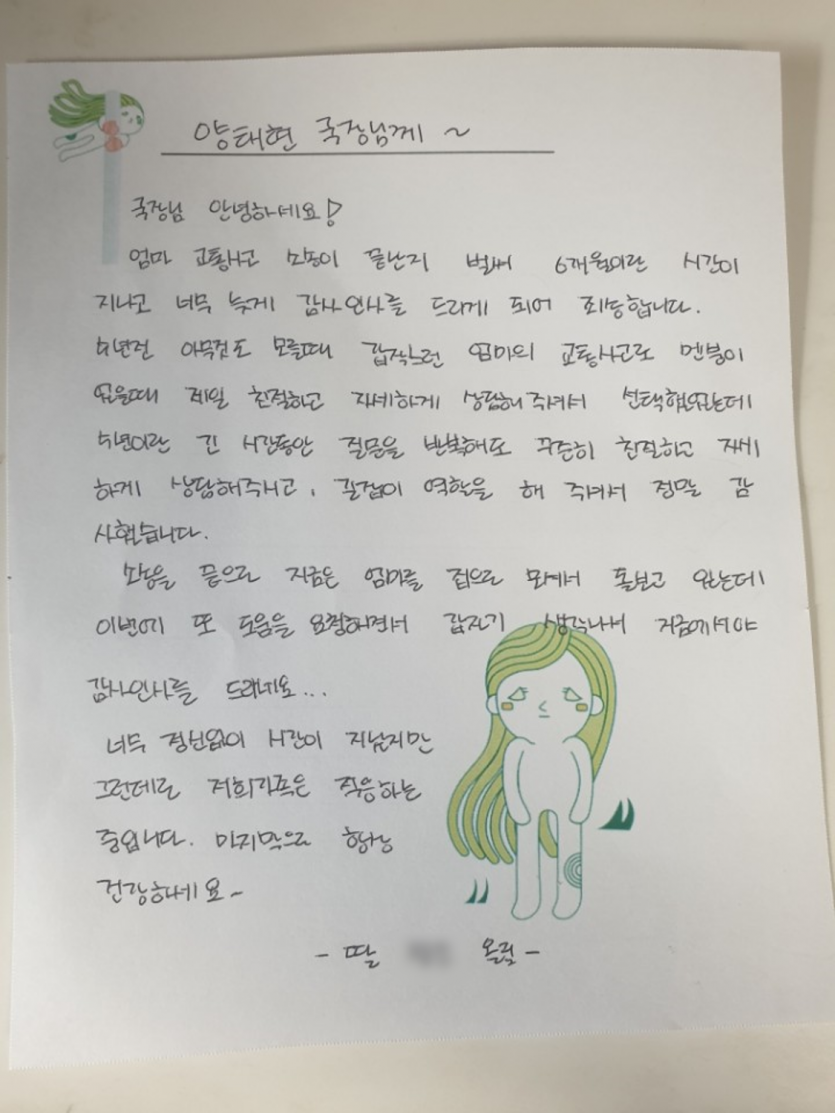 양태현 국장님께 ~
국장님 안녕하세요!
엄마 교통사고 소송이 끝난지 벌써 6개월이란 시간이
지나고 너무 늦게 감사인사를 드리게 되어 죄송합니다.
4년전 아무것도 모를때 갑작스런 엄마의 교통사고로 멘붕이
왔을때 제일 친절하고 자세하게 상담해 주셔서 선택했었는데
4년이란 긴 시간동안 질문을 반복해도 꾸준히 친절하고 자세
하게 상담해주시고, 길잡이 역할을 해 주셔서 정말 감
사했습니다.
소송을 끝으로 지금은 엄마를 집으로 모셔서 돌보고 있는데
이번에 또 도움을 요청하면서 갑자기 생각나서 지금에서야
감사인사를 드리네요...
너무 정신없이 시간이 지났지만
그런대로 저희가족은 적응하는
중입니다. 마지막으로 항상
건강하세요~
- 딸 올림 -